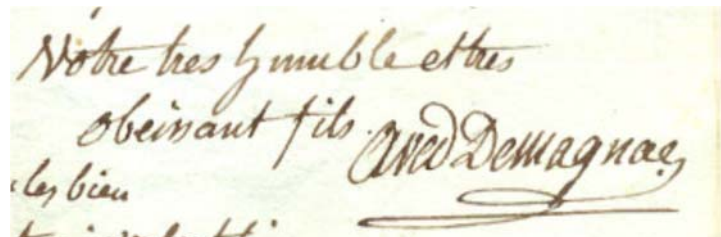 Votre tres humble et tres
obeissant fils. Aved Demagnac
les bien